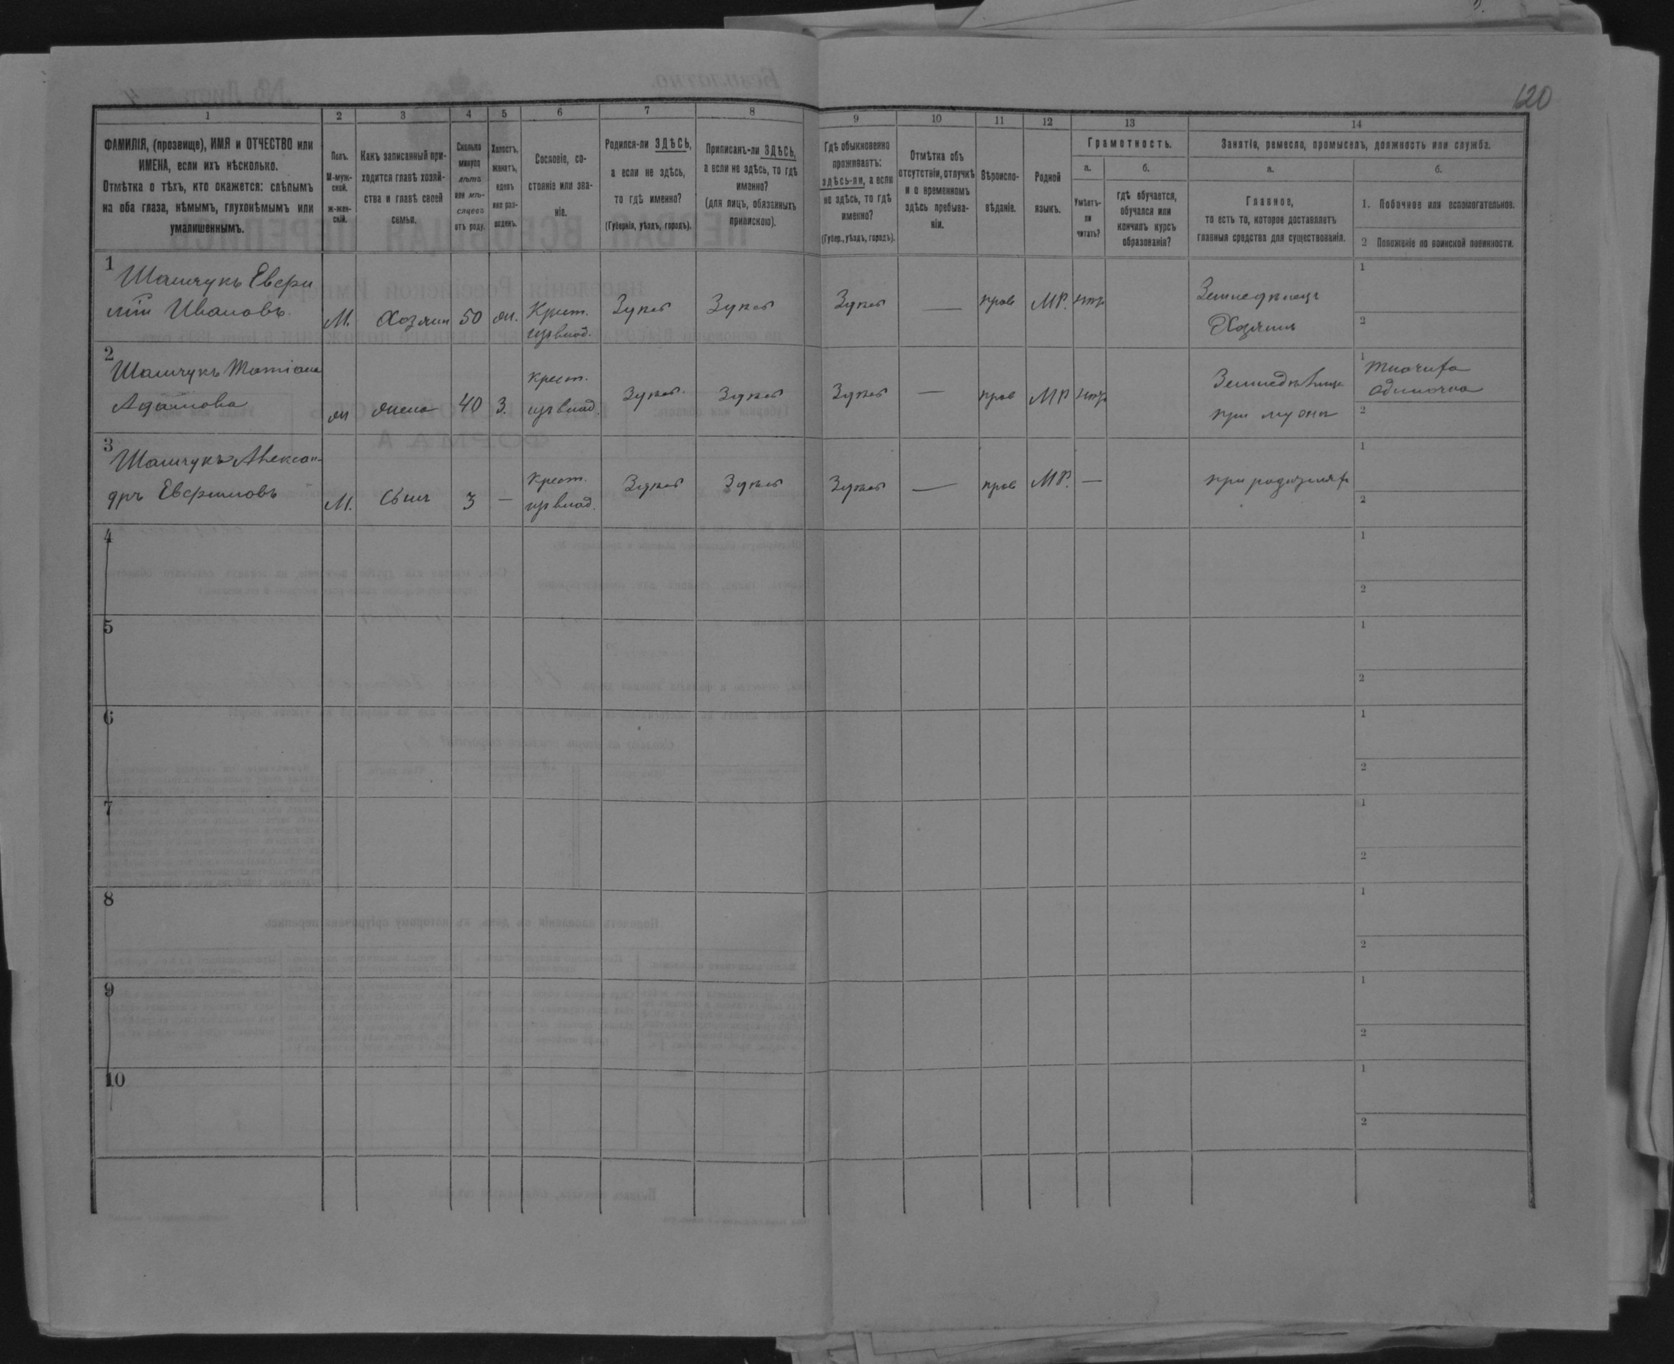 120
1
2
3
4
5
6
7
8
9
10
11
12
13
14
ФАМИЛІЯ, (прозвище), ИМЯ и ОТЧЕСТВО или
ИМЕНА, если ихъ нѣсколько.
Отмѣтка о тѣхъ, кто окажется: слѣпымъ
на оба глаза, нѣмымъ, глухонѣмымъ или
умалишеннымъ.
Полъ.
М-муж-
ской.
ж-жен-
скій.
Какъ записанный при-
ходится главѣ хозяй-
ства и главѣ своей
семьи.
Сколько
минуло
лѣтъ
или мѣ-
сяцевъ
отъ роду.
Холостъ,
женатъ,
вдовъ
или раз-
веденъ.
Сословіе, со-
стояніе или зва-
ніе.
Родился-ли ЗДѢСЬ,
а если не здѣсь,
то гдѣ именно?
(Губернія, уѣздъ, городъ).
Приписанъ-ли ЗДѢСЬ,
а если не здѣсь, то гдѣ
именно?
(для лицъ, обязанныхъ
припискою).
Гдѣ обыкновенно
проживаетъ:
здѣсь-ли, а если
не здѣсь, то гдѣ
именно?
(Губер., уѣздъ, городъ).
Отмѣтка объ
отсутствіи, отлучкѣ
и о временномъ
здѣсь пребыва-
ніи.
Вѣроиспо-
вѣданіе.
Родной
языкъ.
Грамотность.
а.
Умѣетъ-
ли
читать?
б.
гдѣ обучается,
обучался или
кончилъ курсъ
образованія?
Занятія, ремесло, промыселъ, должность или служба.
а.
Главное,
то есть то, которое доставляетъ
главныя средства для существованія.
б.
1. Побочное или вспомогательное.
2 Положеніе по воинской повинности.
1 Шашчукъ Евфи
мій Ивановъ. М. Хозяинъ 50 жн. Крест. изъ влад. Здѣсь Здѣсь Здѣсь — прав МР. нѣтъ Земледѣлецъ Хозяинъ 1 2
2 Шашчукъ Татіана
Адамова ж жена 40 З. крест. изъ влад Здѣсь Здѣсь Здѣсь — прав МР нѣтъ Земледѣлица при мужѣ 1 Ткачиха одиночка 2
3 Шашчукъ Алексан-
дръ Евфимовъ М. сынъ 3 — Крест. изъ влад. Здѣсь Здѣсь Здѣсь — прав МР. — при родителяхъ 1 2
4 1 2
5 1 2
6 1 2
7 1 2
8 1 2
9 1 2
10 1 2